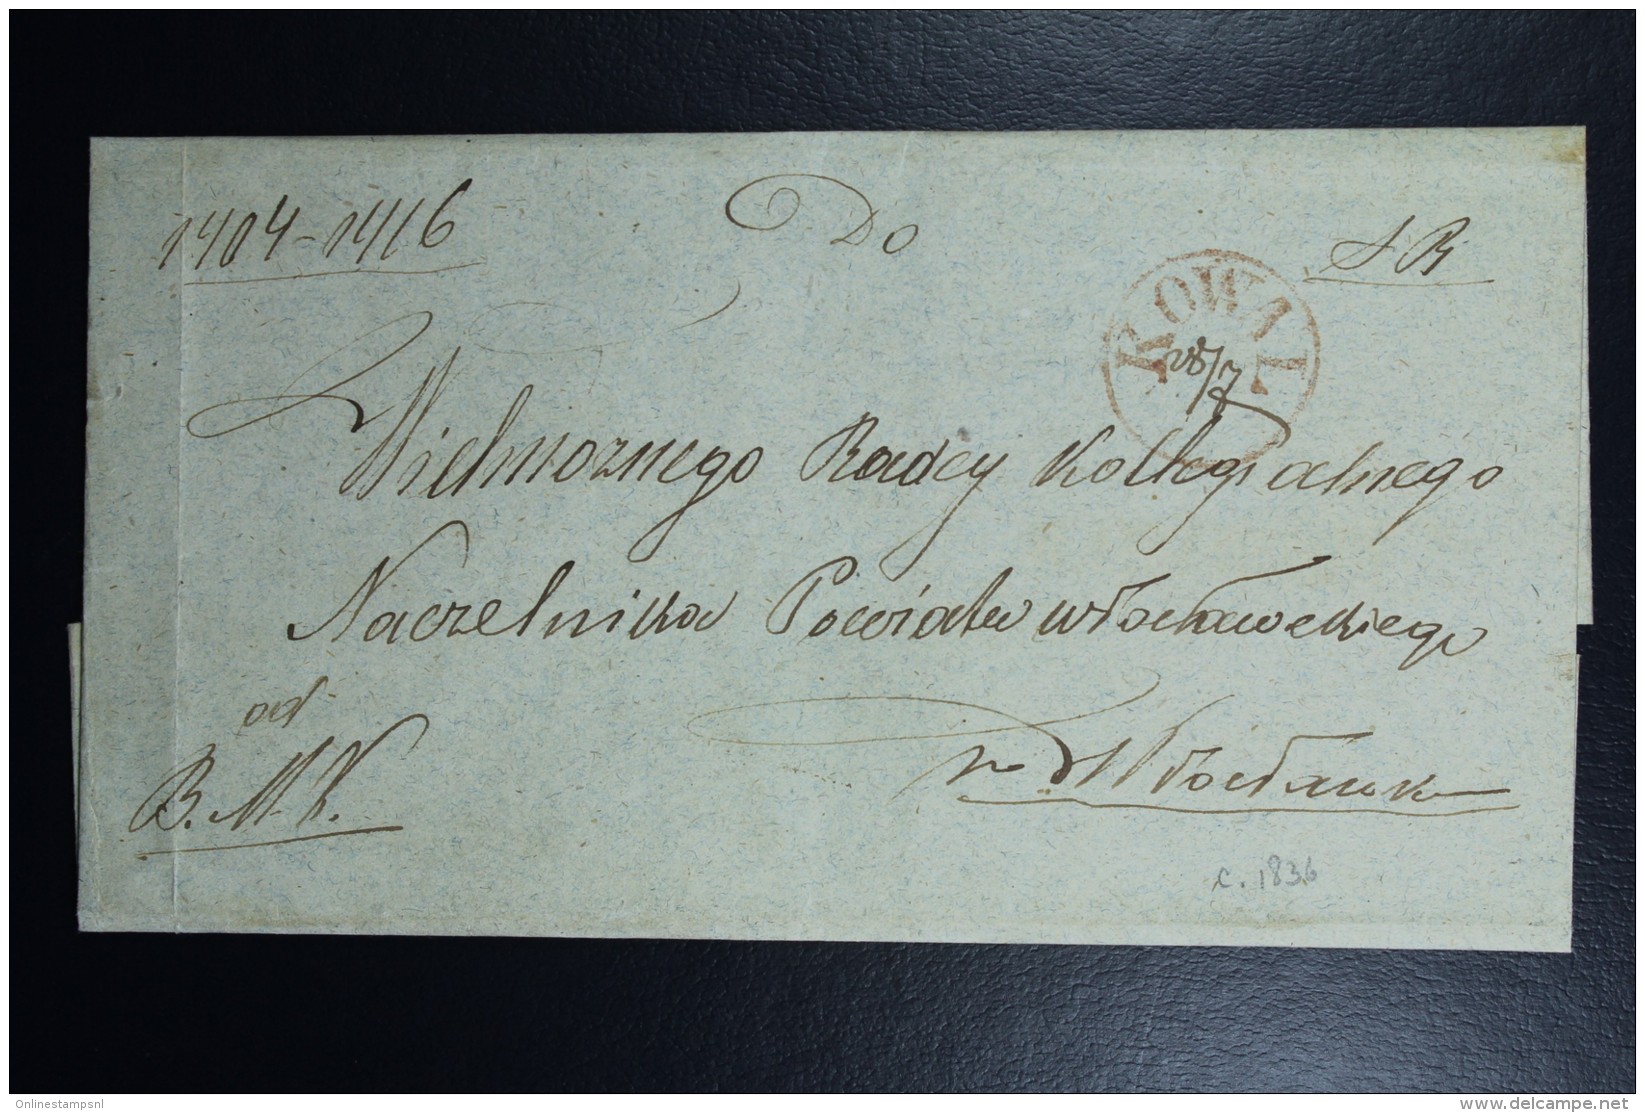 1404-1416
Do
S R
KOWAL
28/7
Wielmoznego Radcy Kollegialnego
Naczelnika Powiatu Włocławskiego
od
B. M. K.
w Włocławku
c. 1836
Onlinestampsnl
www.delcampe.net